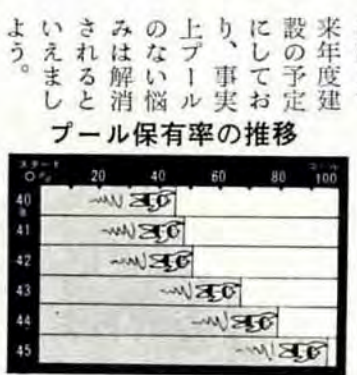 来年度建
設の予定
にしてお
り、事実
上プール
のない悩
みは解消
されると
いえまし
よう。
プール保有率の推移
スタート ゴール
0% 20 40 60 80 100
40年
41
42
43
44
45